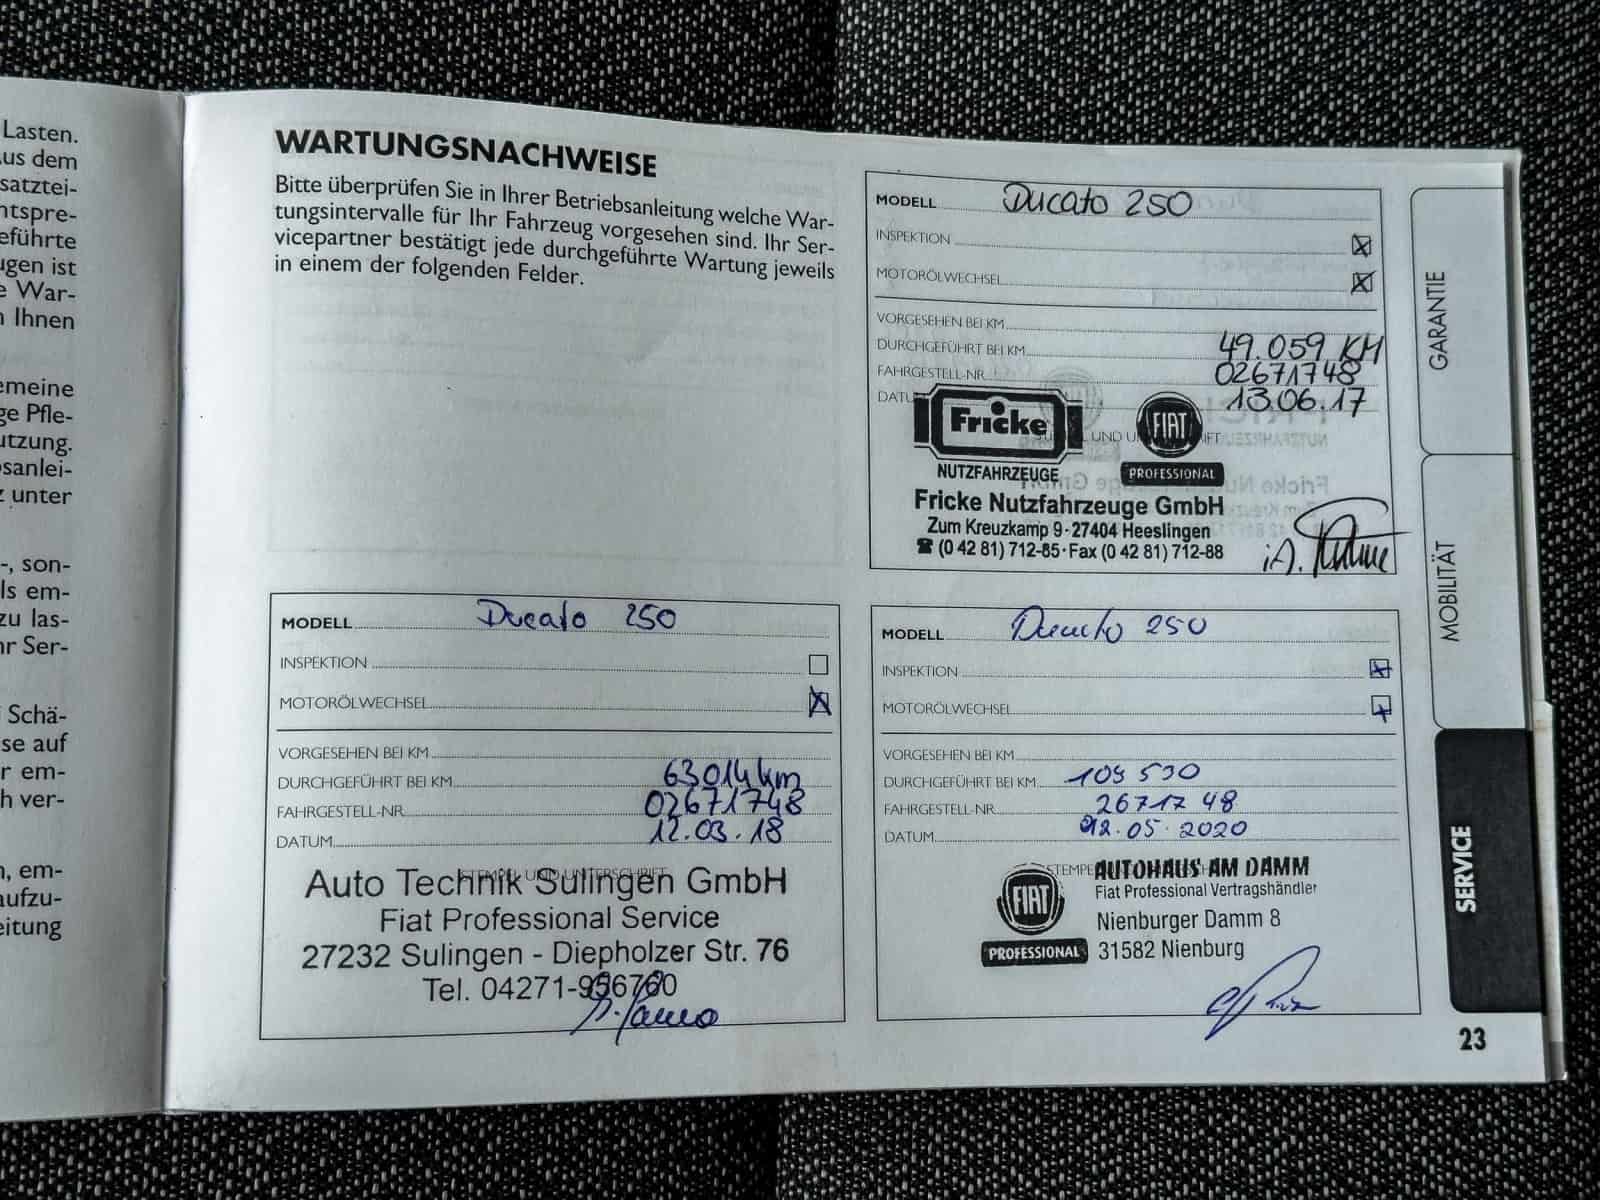 Lasten.
us dem
satztei-
ntspre-
eführte
ugen ist
e War-
n Ihnen
emeine
ge Pfle-
utzung.
sanlei-
z unter
-, son-
ls em-
zu las-
hr Ser-
Schä-
se auf
r em-
h ver-
n, em-
aufzu-
eitung
WARTUNGSNACHWEISE
Bitte überprüfen Sie in Ihrer Betriebsanleitung welche War-
tungsintervalle für Ihr Fahrzeug vorgesehen sind. Ihr Ser-
vicepartner bestätigt jede durchgeführte Wartung jeweils
in einem der folgenden Felder.
MODELL Ducato 250
INSPEKTION
MOTORÖLWECHSEL
VORGESEHEN BEI KM
DURCHGEFÜHRT BEI KM 49.059 KM
FAHRGESTELL-NR. 02671748
DATU 13.06.17
Fricke FIAT
NUTZFAHRZEUGE PROFESSIONAL
Fricke Nutzfahrzeuge GmbH
Zum Kreuzkamp 9 - 27404 Heeslingen
☎ (0 42 81) 712-85 · Fax (0 42 81) 712-88
i.A.
MODELL Ducato 250
INSPEKTION
MOTORÖLWECHSEL
VORGESEHEN BEI KM
DURCHGEFÜHRT BEI KM 63014 km
FAHRGESTELL-NR. 02671748
DATUM 12.03.18
STEMPEL UND UNTERSCHRIFT
Auto Technik Sulingen GmbH
Fiat Professional Service
27232 Sulingen - Diepholzer Str. 76
Tel. 04271-956760
MODELL Ducato 250
INSPEKTION
MOTORÖLWECHSEL
VORGESEHEN BEI KM
DURCHGEFÜHRT BEI KM 109 590
FAHRGESTELL-NR. 26717 48
DATUM 12.05.2020
AUTOHAUS AM DAMM
Fiat Professional Vertragshändler
FIAT
PROFESSIONAL
Nienburger Damm 8
31582 Nienburg
GARANTIE
MOBILITÄT
SERVICE
23